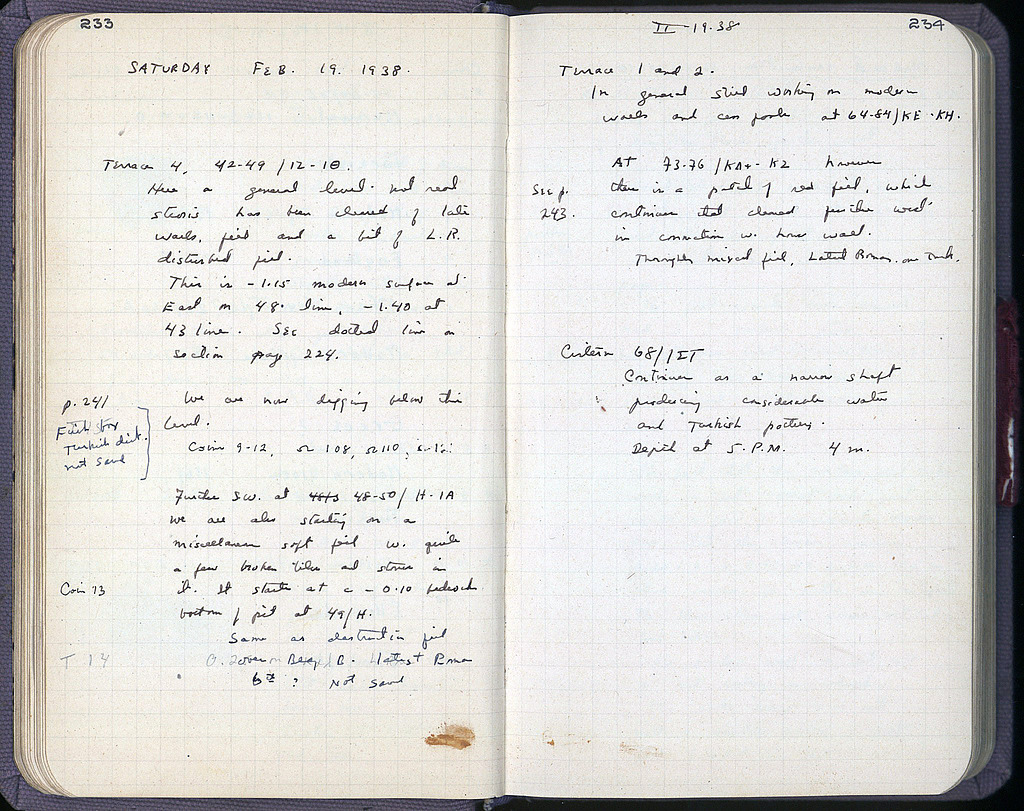 233
SATURDAY FEB. 19. 1938.
Terrace 4, 42-49 / 12-18.
Here a general level. not real
has been cleared of late
walls, pits and a bit of L.R.
disturbed fill.
This is -1.15 modern surface at
East on 48 line, -1.40 at
43 line. See dotted line on
section page 224.
p. 241
We are now digging below this
level.
Turkish dist.
not saved
Coins 9-12,
Further SW. at 48-50/ H-IA
we are also starting on a
miscellaneous soft fill w. quite
a few broken tiles and stones in
Coin 13
it. It starts at c - 0.10 bedrock
bottom of pit at 49/H.
Same as destruction fill
T 14
B. latest Roman
6th ? Not saved
II-19-38
234
Terrace 1 and 2.
In general still working on modern
walls and cess pools at 64-84/KE-KH.
At 73-76 /KA+- K2 however
See p.
243.
there is a patch of red fill, which
continues cleared further west
in connection w. house wall.
Throughly mixed fill, Latest Roman. on Turk.
Cistern 68/IET
Continues as a narrow shaft
producing considerable water
and Turkish pottery.
Depth at 5. P.M. 4 m.